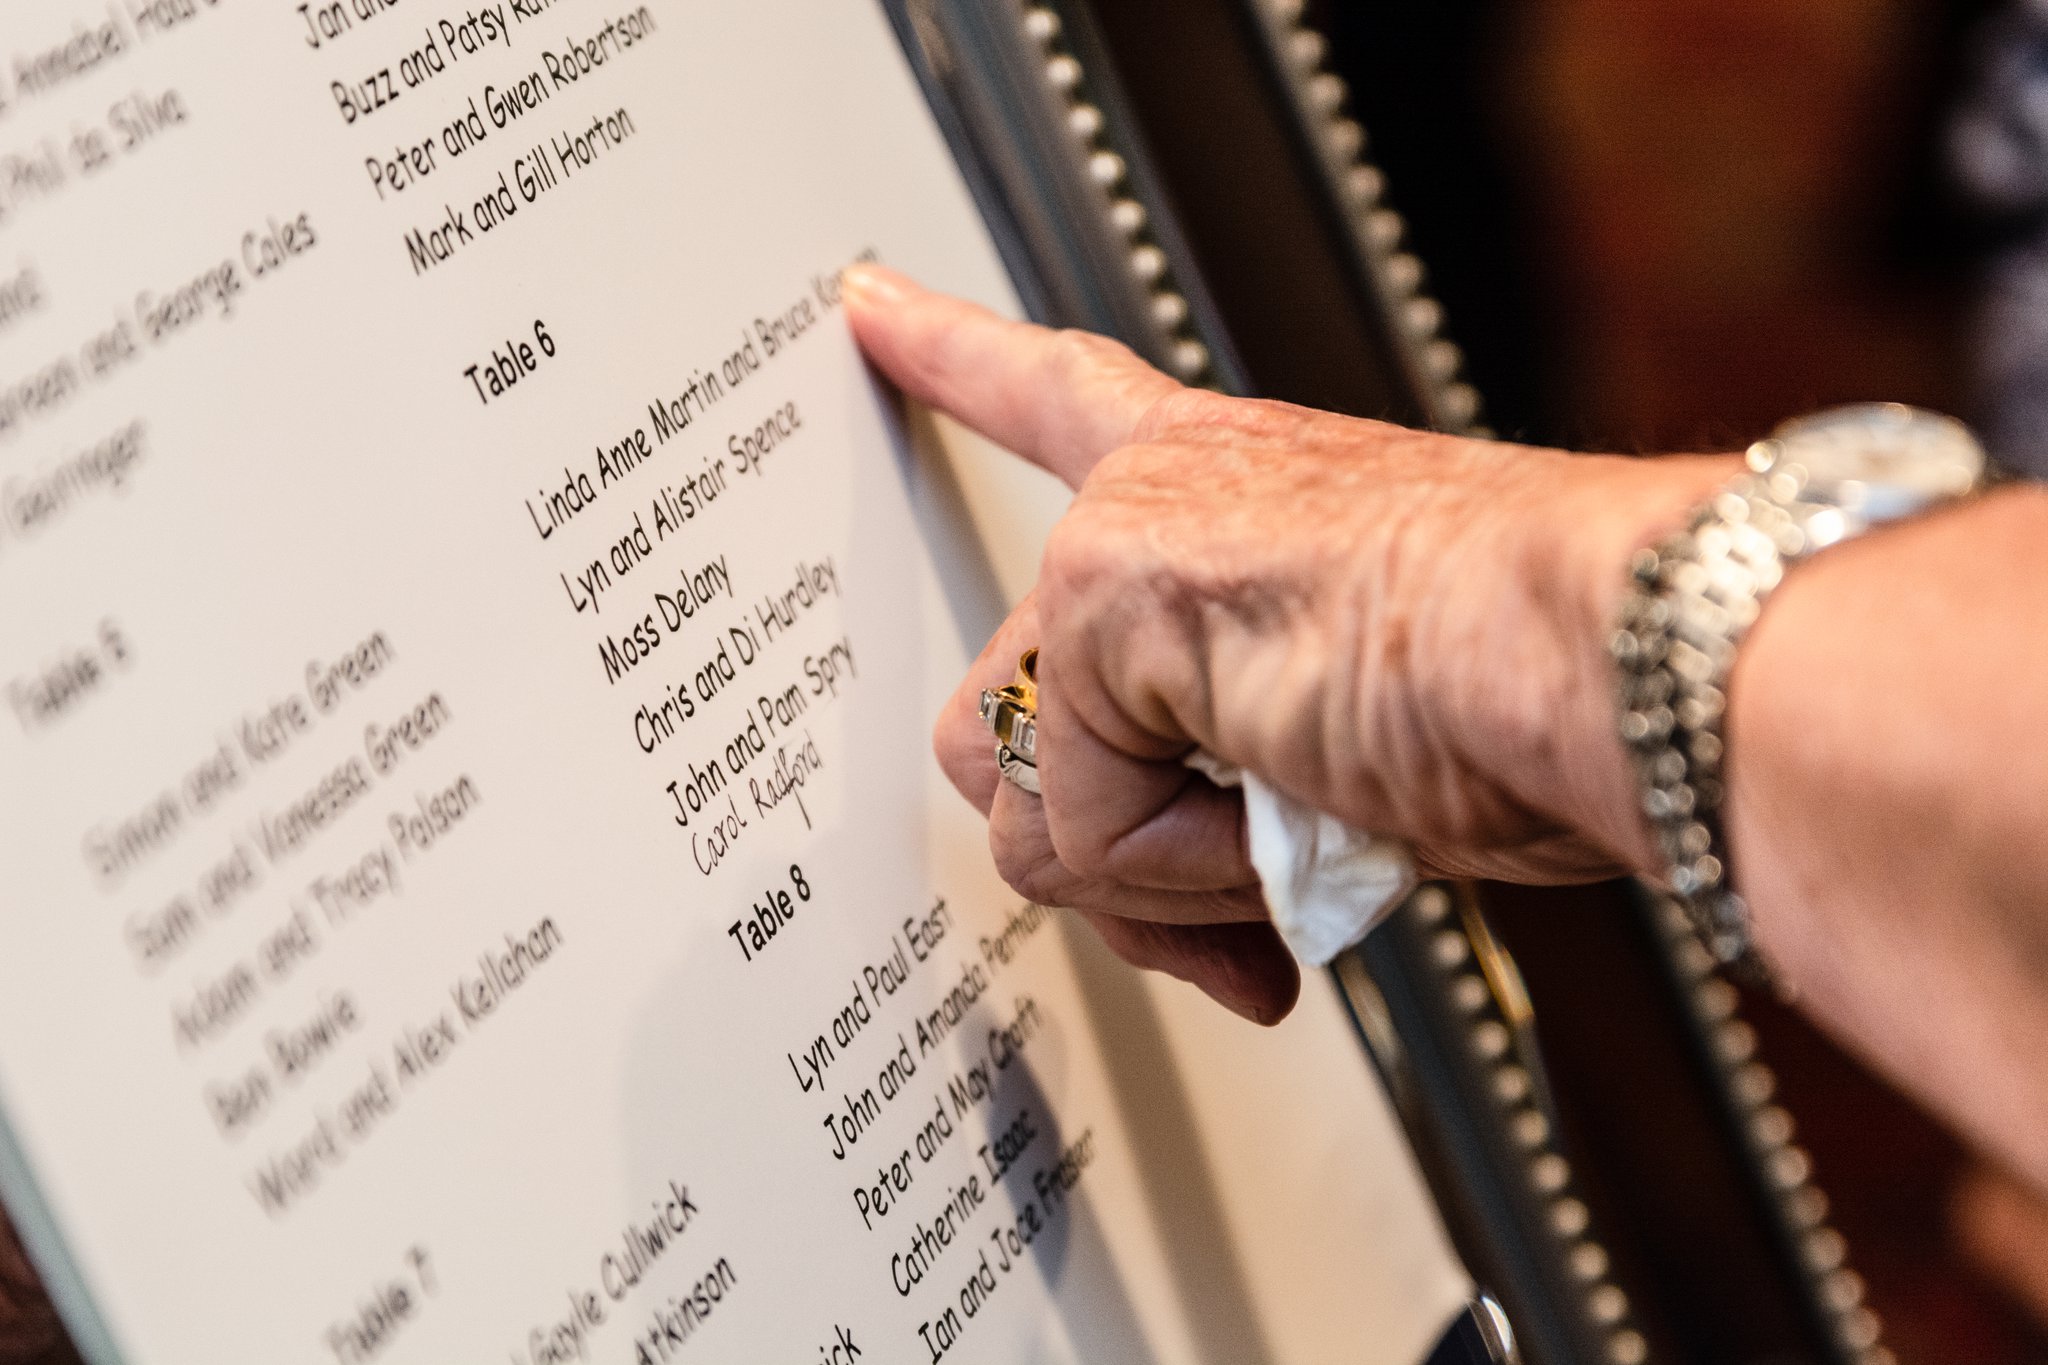 Annabel
Phil da Silva
and George Cales
Geiringer
Table 5
Simon and Kate Green
Sam and Vanessa Green
Adam and Tracy Polson
Ben Bowie
Ward and Alex Kellahan
Table 7
Gayle Cullwick
Atkinson
Jan and
Buzz and Patsy
Peter and Gwen Robertson
Mark and Gill Horton
Table 6
Linda Anne Martin and Bruce
Lyn and Alistair Spence
Moss Delany
Chris and Di Hurdley
John and Pam Spry
Carol Radford
Table 8
Lyn and Paul East
John and Amanda
Peter and May Croft
Catherine Isaac
Ian and Joce Fraser